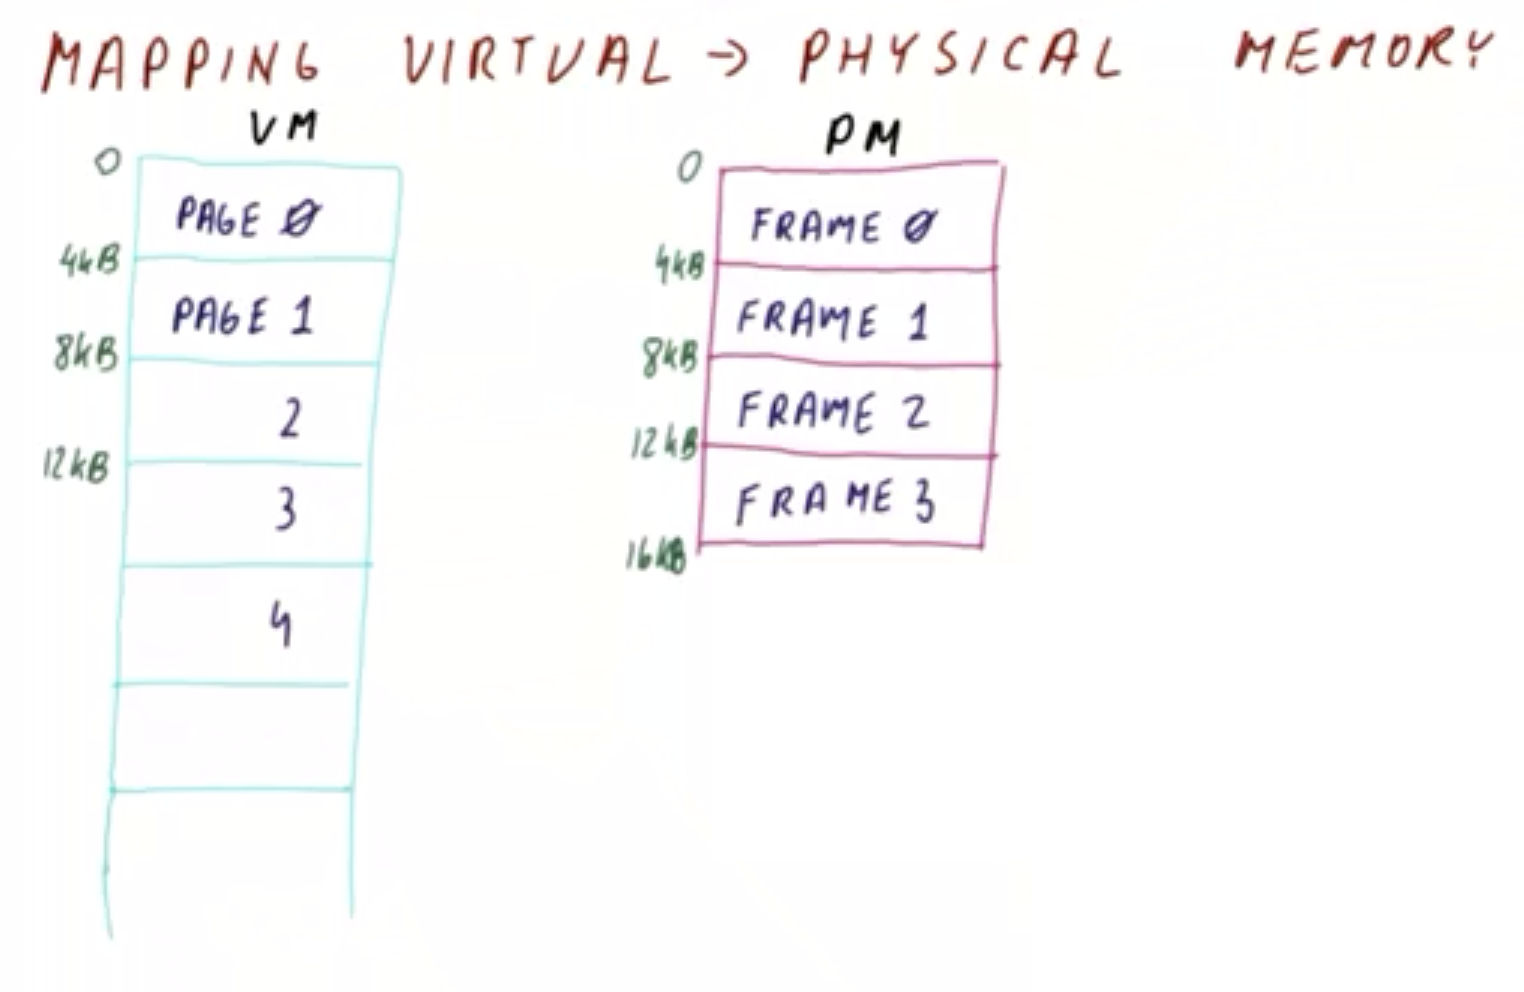 MAPPING VIRTUAL → PHYSICAL MEMORY
VM
0
PAGE 0
4kB
PAGE 1
8kB
2
12kB
3
4
PM
0
FRAME 0
4kB
FRAME 1
8kB
FRAME 2
12kB
FRAME 3
16kB